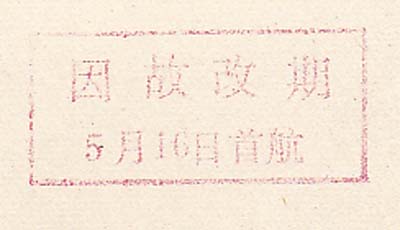 因故改期
5月16日首航